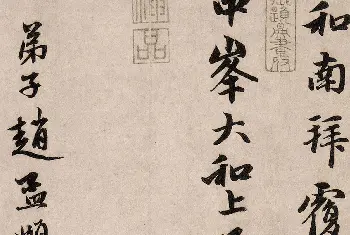 和南拜覆
中峯大和上
弟子趙孟頫